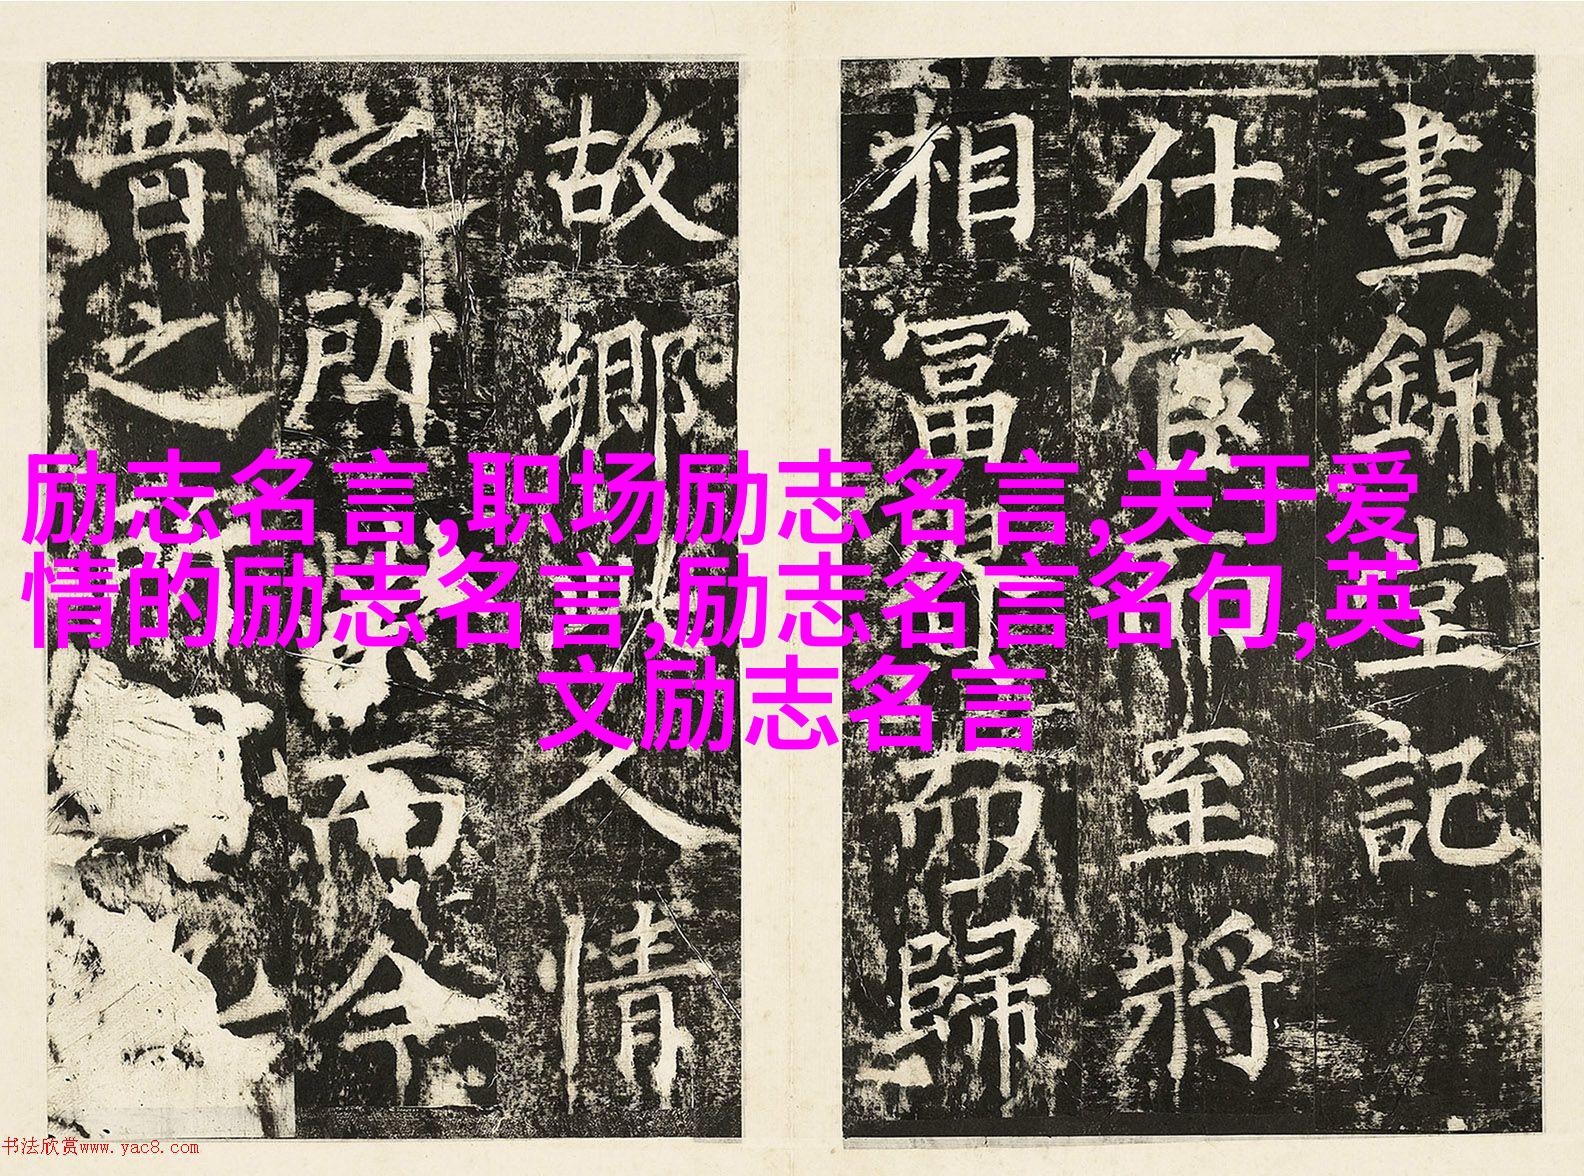 励志名言,职场励志名言,关于爱
情的励志名言,励志名言名句,英
文励志名言
晝錦堂記
仕宦而至將
相富貴而歸
故鄉人情
之所而今
昔之
书法欣赏www.yac8.com